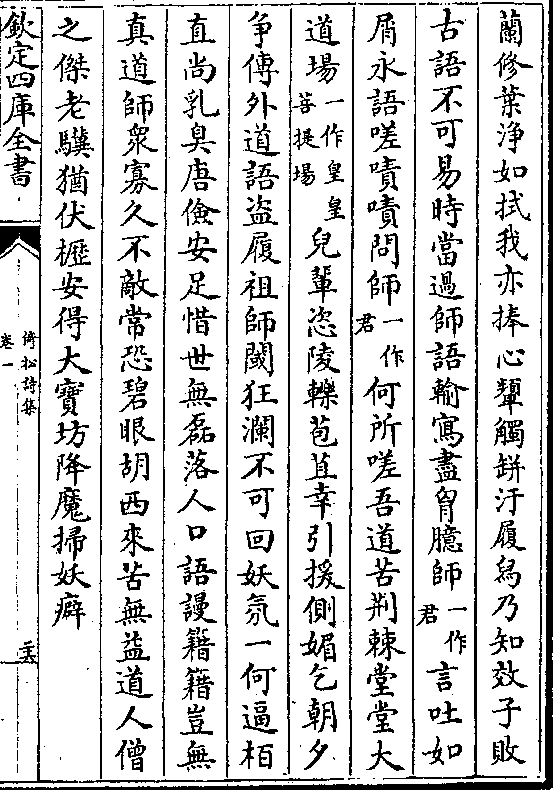 蘭修葉淨如拭我亦捧心顰觸缾汙履舄乃知效子敗
古語不可易時當過師語輸寫盡胷臆師一作君言吐如
屑永語嗟嘖嘖問師一作君何所嗟吾道苦荆棘堂堂大
道場一作皇皇菩提場兒輩恣陵轢苞苴幸引援側媚乞朝夕
争傳外道語盜履祖師閾狂瀾不可回妖氛一何逼栢
直尚乳臭唐儉安足惜世無磊落人口語謾籍籍豈無
真道師衆寡久不敵常恐碧眼胡西來苦無益道人僧
之傑老驥猶伏櫪安得大寶坊降魔掃妖癖
欽定四庫全書
倚松詩集
卷一
二六